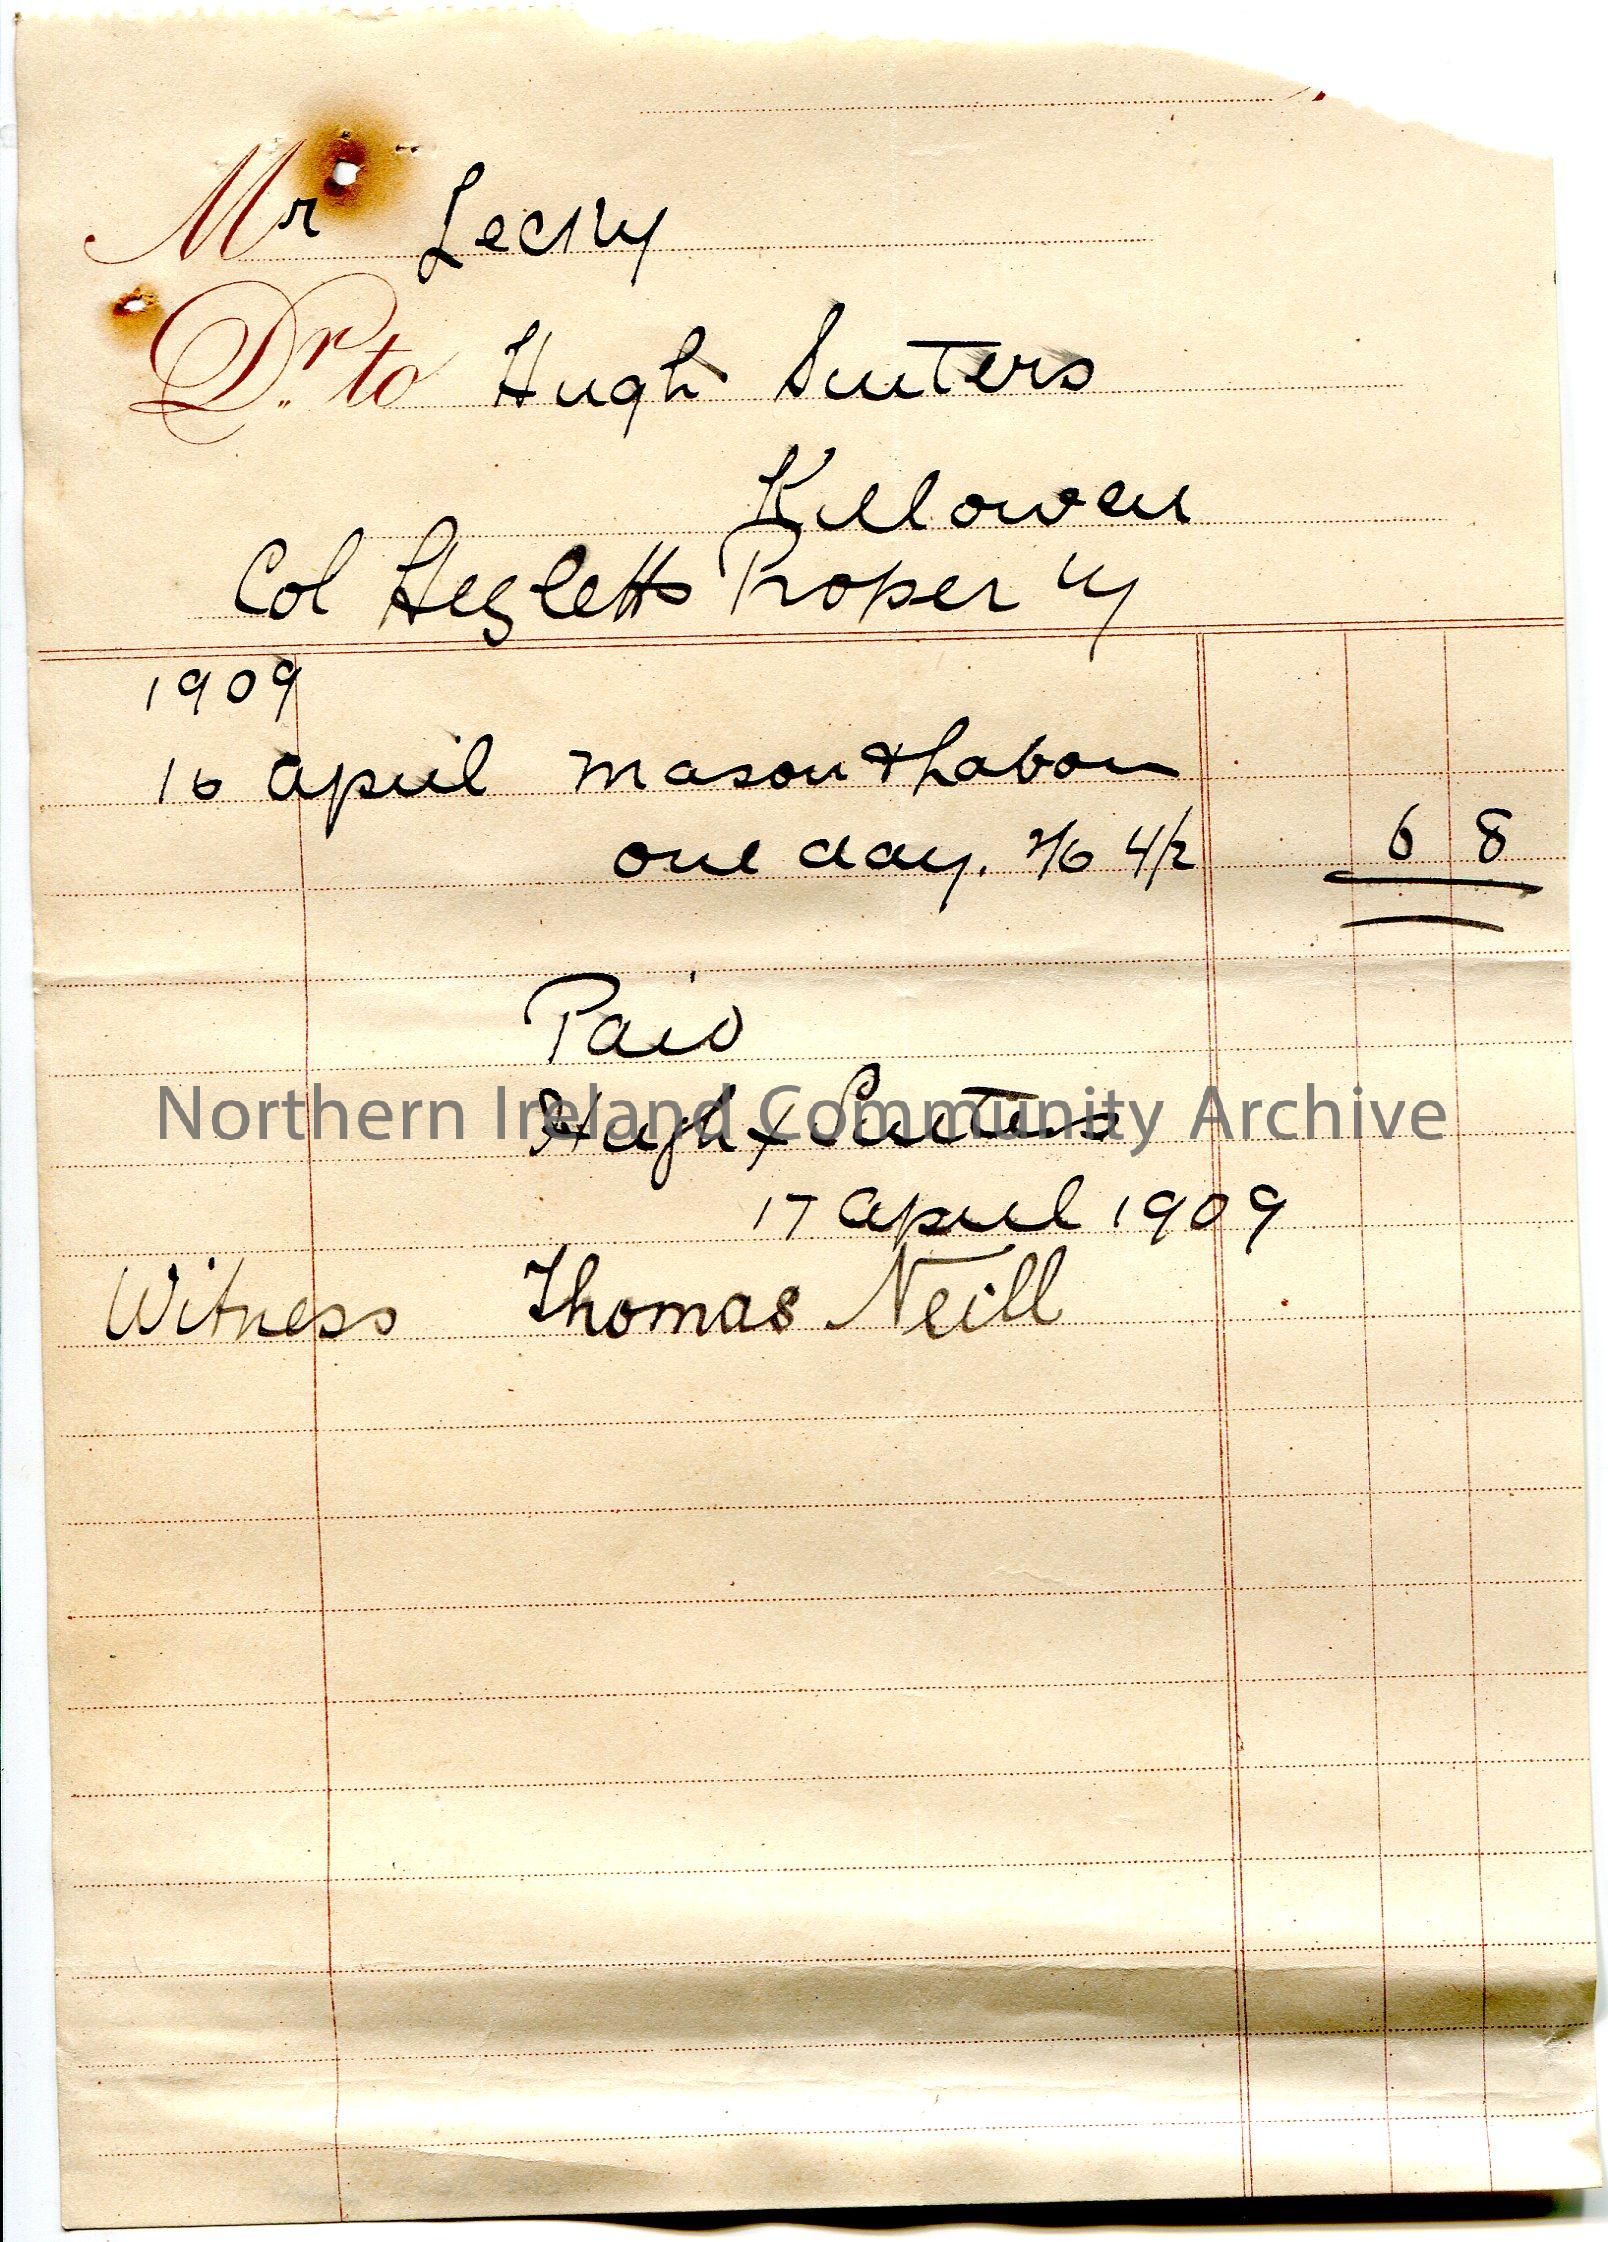 Mr Lecky
Dr. to Hugh Suiters
Killowen
Col Hezletts Property
1909
16 april mason & labour
one day. 2/6 4/2 6 8
Paid
Northern Ireland Community Archive
Hugh x Suiters
17 april 1909
Witness Thomas Neill